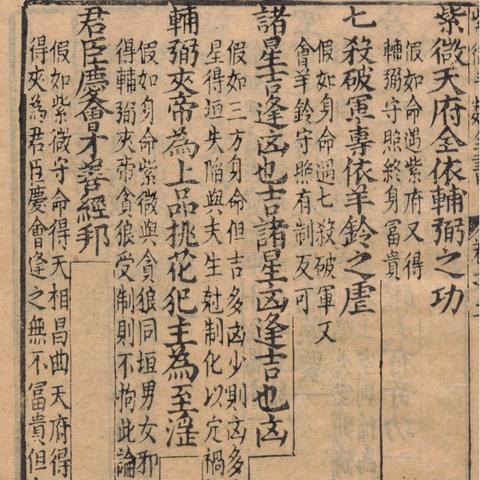 紫微天府全依輔弼之功
假如身命遇紫府又得
輔弼守照終身冨貴
七殺破軍專依羊鈴之虐
假如身命遇七殺破軍又
會羊鈴守照有制反可
諸星吉逢凶也吉諸星凶逢吉也凶
假如三方身命但吉多凶少則凶多
星得垣失陷與夫生尅制化以定禍
輔弼夾帝為上品桃花犯主為至淫
假如身命紫微與貪狼同垣男女邪
得輔弼夾帝貪狼受制則不拘此論
君臣慶會才善經邦
假如紫微守命得天相昌曲天府得
得夾為君臣慶會逢之無不冨貴但